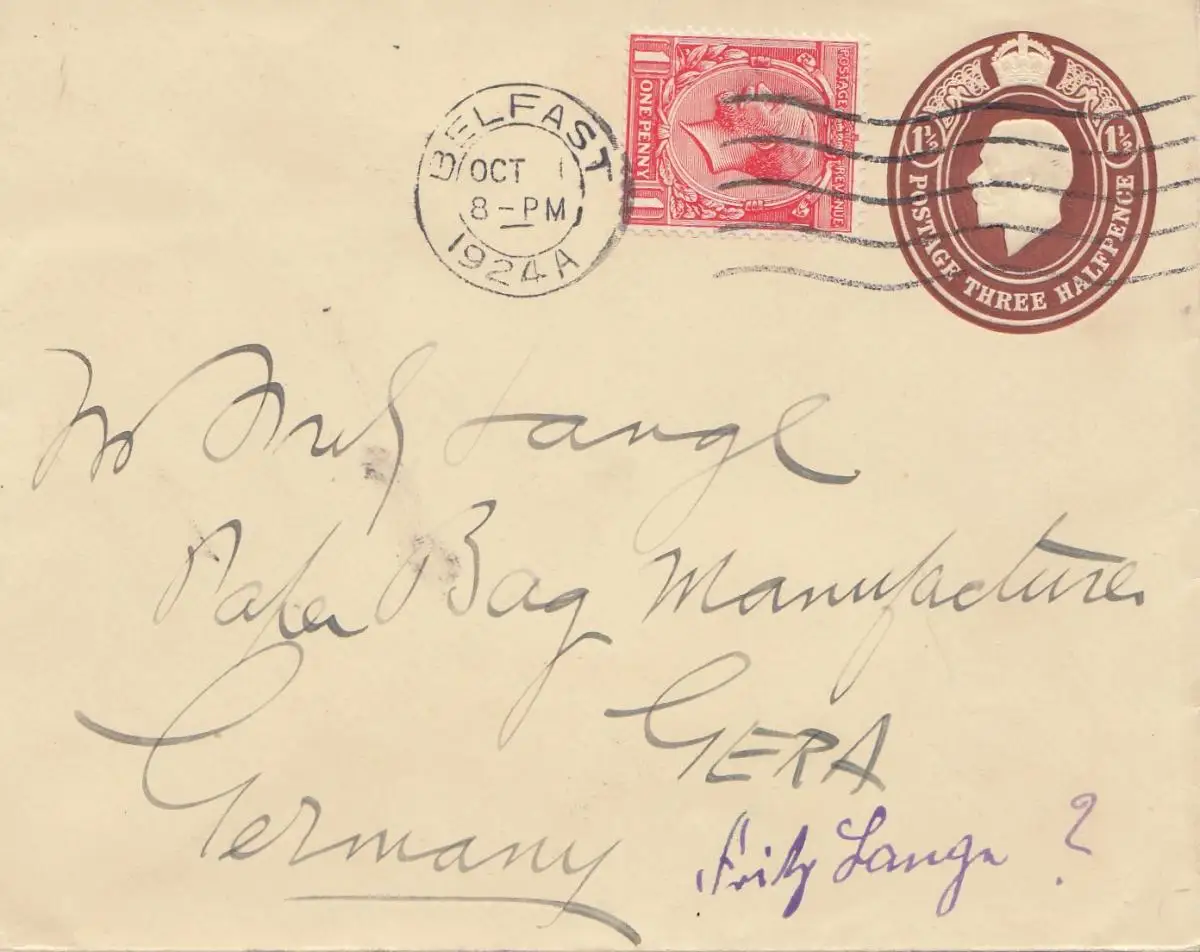 BELFAST
OCT 1
8-PM
1924A
POSTAGE REVENUE
ONE PENNY
1 1
1½ 1½
POSTAGE THREE HALFPENCE
Lange
Paper Bag Manufacturer
GERA
Germany
Fritz Lange ?